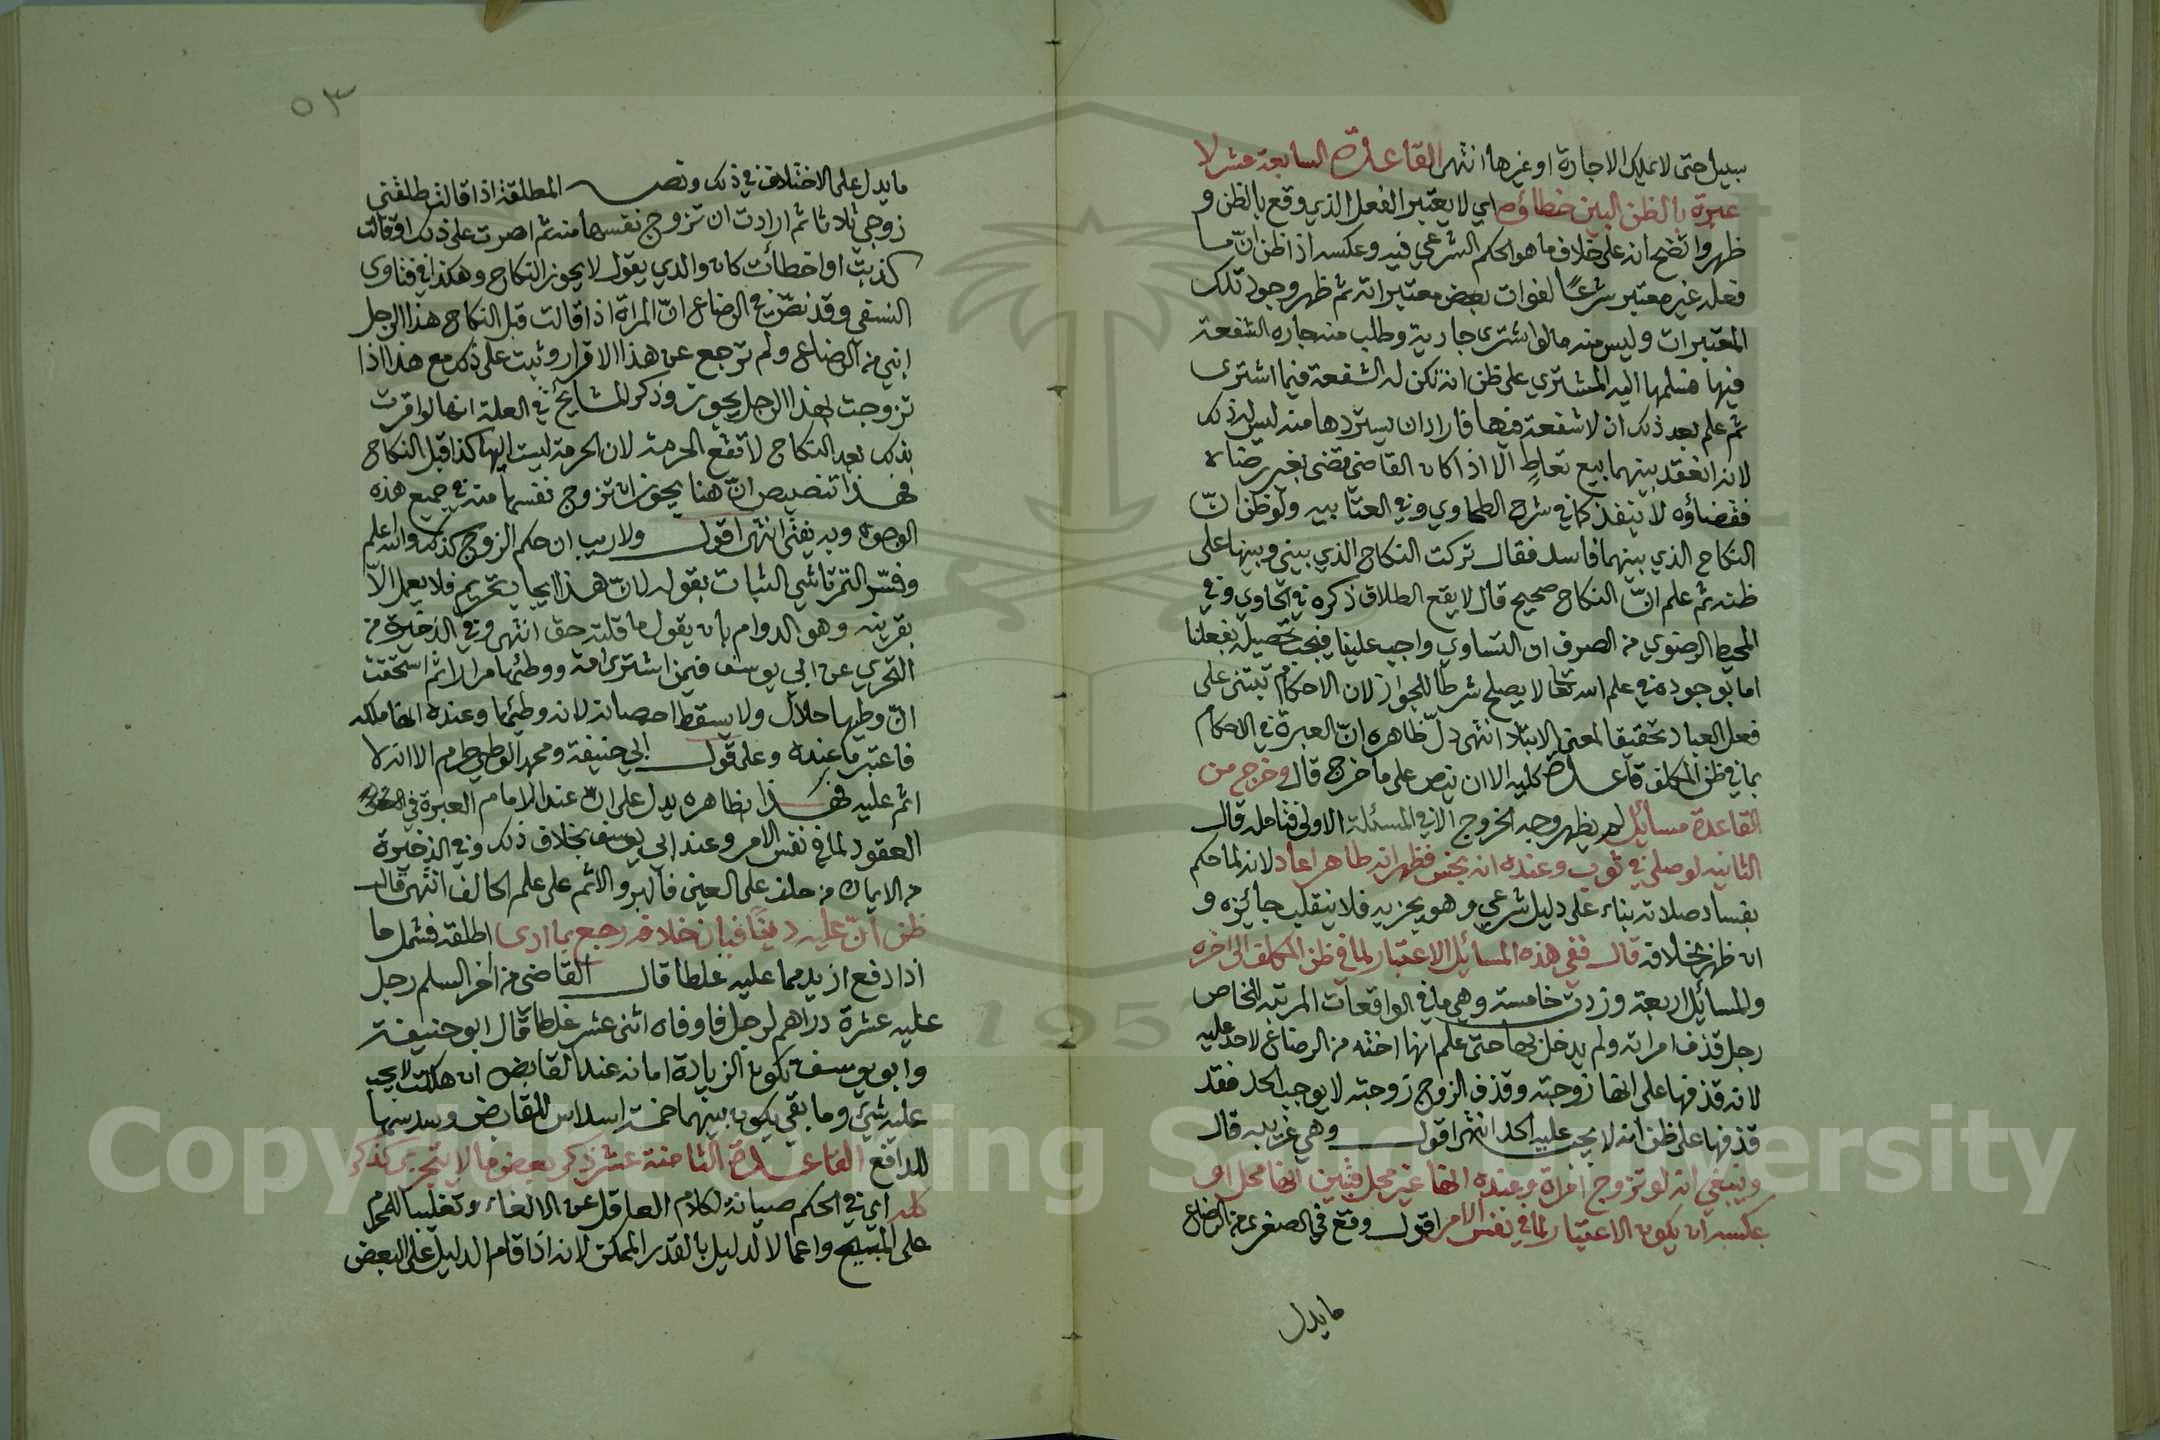 سبيل حتى لا يملك الاجارة او غيرها انتهى القاعدة السابعة عشر لا
عبرة بالظن البين خطاؤه اي لا يعتبر الفعل الذي وقع بالظن و
ظهر واتضح انه على خلاف ما هو الحكم الشرعي فيه وعكسه اذا ظن ان ما
فعله غير معتبر شرعا لفوات بعض معتبراته ثم ظهر وجود تلك
المعتبرات وليس منه ما لو اشترى جارية وطلب منه جاره الشفعة
فيها فسلمها اليه المشتري على ظن انه تكن له الشفعة فيما اشترى
ثم علم بعد ذلك ان لا شفعة فيها فاراد ان يستردها منه ليس له ذلك
لانه انعقد بينهما بيع تعاطٍ الّا اذا كان القاضي قضى بغير رضاه
فقضاؤه لا ينفذ كما في شرح الطحاوي وفي العتابيه ولو ظن انّ
النكاح الذي بينهما فاسد فقال تركت النكاح الذي بيني وبينها على
ظنه ثم علم انّ النكاح صحيح قال لا يقع الطلاق ذكره في الحاوي وفي
المحيط الرضوي من الصرف ان التساوي واجب علينا فيجب تحصيله بفعلنا
اما بوجوده في علم الله تعا لا يصلح شرطا للجواز لان الاحكام تبتنى على
فعل العباد تحقيقا لمعنى الابتلا انتهى دلّ ظاهره انّ العبرة في الاحكام
بما في ظن المكلف قاعدة كليه الا ان ينص على ما خرج قال وخرج من
القاعدة مسائل لم يظهر وجه الخروج الا في المسئلة الاولى فتامله قال
الثانيه لو صلى في ثوب وعنده انه نجس فظهر انه طاهر اعاد لانه لما حكم
بفساد صلاته بناء على دليل شرعي وهو تحريه فلا ينقلب جائزه و
ان ظهر بخلافه قال ففي هذه المسائل الاعتبار لما في ظن المكلف الى اخره
والمسائل اربعة وزدت خامسة وهي ما في الواقعات المرتبه للخاص
رجل قذف امراته ولم يدخل بها حتى علم انها اخته من الرضاع لا حد عليه
لانه قذفها على انها زوجته وقذف الزوج زوجته لا يوجب الحد فقد
قذفها على ظن انه لا يجب عليه الحد انتهى اقول وهي غريبه قال
وينبغي انه لو تزوج امراة وعنده انها غير محل فتبين انها محل او
عكسه ان يكون الاعتبار لما في نفس الامر اقول وقع في الصغرى من الرضاع
ما يدل
٥٣
ما يدل على الاختلاف في ذلك ونصه المطلقة اذا قالت طلقني
زوجي ثلاثا ثم ارادت ان تزوج نفسها منه ثم اصرت على ذلك او قالت
كذبت او اخطأت كان والدي يقول لا يجوز النكاح وهكذا في فتاوى
النسفي وقد نصّ في الرضاع انّ المراة اذا قالت قبل النكاح هذا الرجل
ابني من الرضاع ولم ترجع عن هذا الاقرار وثبت على ذلك مع هذا اذا
تزوجت لهذا الرجل يجوز وذكر المشايخ في العلة انها لو اقرت
بذلك بعد النكاح لا تقع الحرمة لان الحرمة ليست اليها كذا قبل النكاح
فهذا تنصيص انّ هنا يجوز ان تزوج نفسها منه في جميع هذه
الوجوه وبه يفتى انتهى اقول ولا ريب ان حكم الزوج كذلك والله اعلم
وفسّر التمرتاشي الثبات بقوله لانّ هذا ايجاب تحريم فلا يعمل الّا
بقرينه وهو الدوام بان يقول ما قلته حق انتهى وفي الذخيرة من
التحري عن ابي يوسف فيمن اشترى امة ووطئها مرارا ثم استحقت
انّ وطيها حلال ولا يسقط احصانه لانه وطئها وعنده انها ملكه
فاعتبر ما عنده وعلى قول ابي حنيفة ومحمد الوطئ حرام الا انه لا
اثم عليه فهذا بظاهره يدل على ان عند الامام العبرة في
العقود لما في نفس الامر وعند ابي يوسف بخلاف ذلك وفي الذخيرة
من الايمان من حلف على العين فالبر والاثم على علم الحالف انتهى قال
ظن انّ عليه دينًا فبان خلافه رجع بما ادى اطلقه فشمل ما
اذا دفع ازيد مما عليه غلطا قال القاضي من اخر السلم رجل
عليه عشرة دراهم لرجل فاوفاه اثنى عشر غلطا قال ابو حنيفة
وابو يوسف تكون الزيادة امانه عند القابض ان هلكت لا يجب
عليه شيئ وما بقي يكون بينهما خمسة اسداس للقابض وسدسها
للدافع القاعدة الثامنة عشر ذكر بعض ما لا يتجزى كذكر
كله اي في الحكم صيانة لكلام العاقل عن الالغاء وتغليبا للمحرم
على المبيح واعمالا لدليل بالقدر الممكن لانه اذا قام الدليل على البعض
Copyright © King Saud University
1957